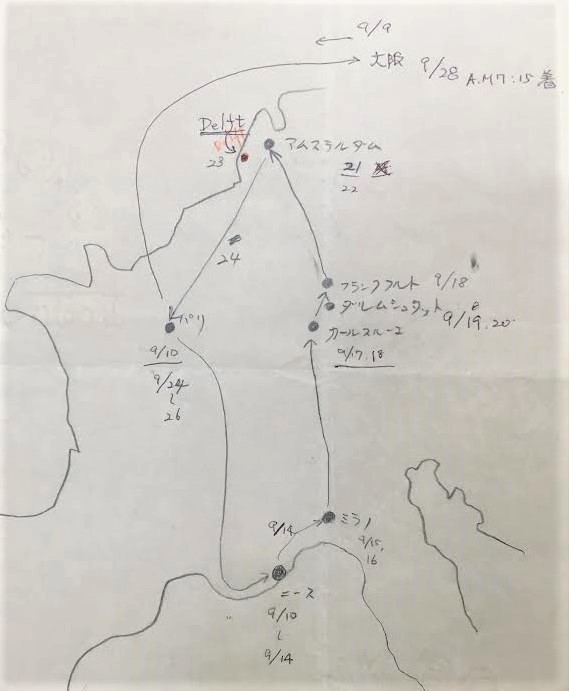 9/9
大阪 9/28 A.M7:15 着
Delft
23
アムステルダム
21
22
24
フランクフルト 9/18
ダルムシュタット 9/19.20
カールスルーエ
9/17.18
パリ
9/10
9/24
〜
26
9/14
ミラノ
9/15,
16
ニース
9/10
〜
9/14